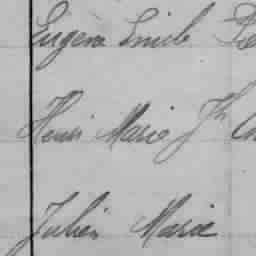 Eugène Emile
Henri Marie Jh
Julien Marie